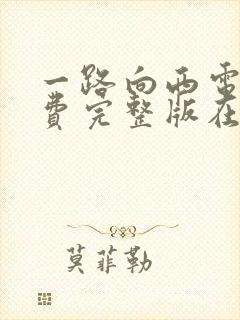 一路向西电
费完整版在
莫菲勒